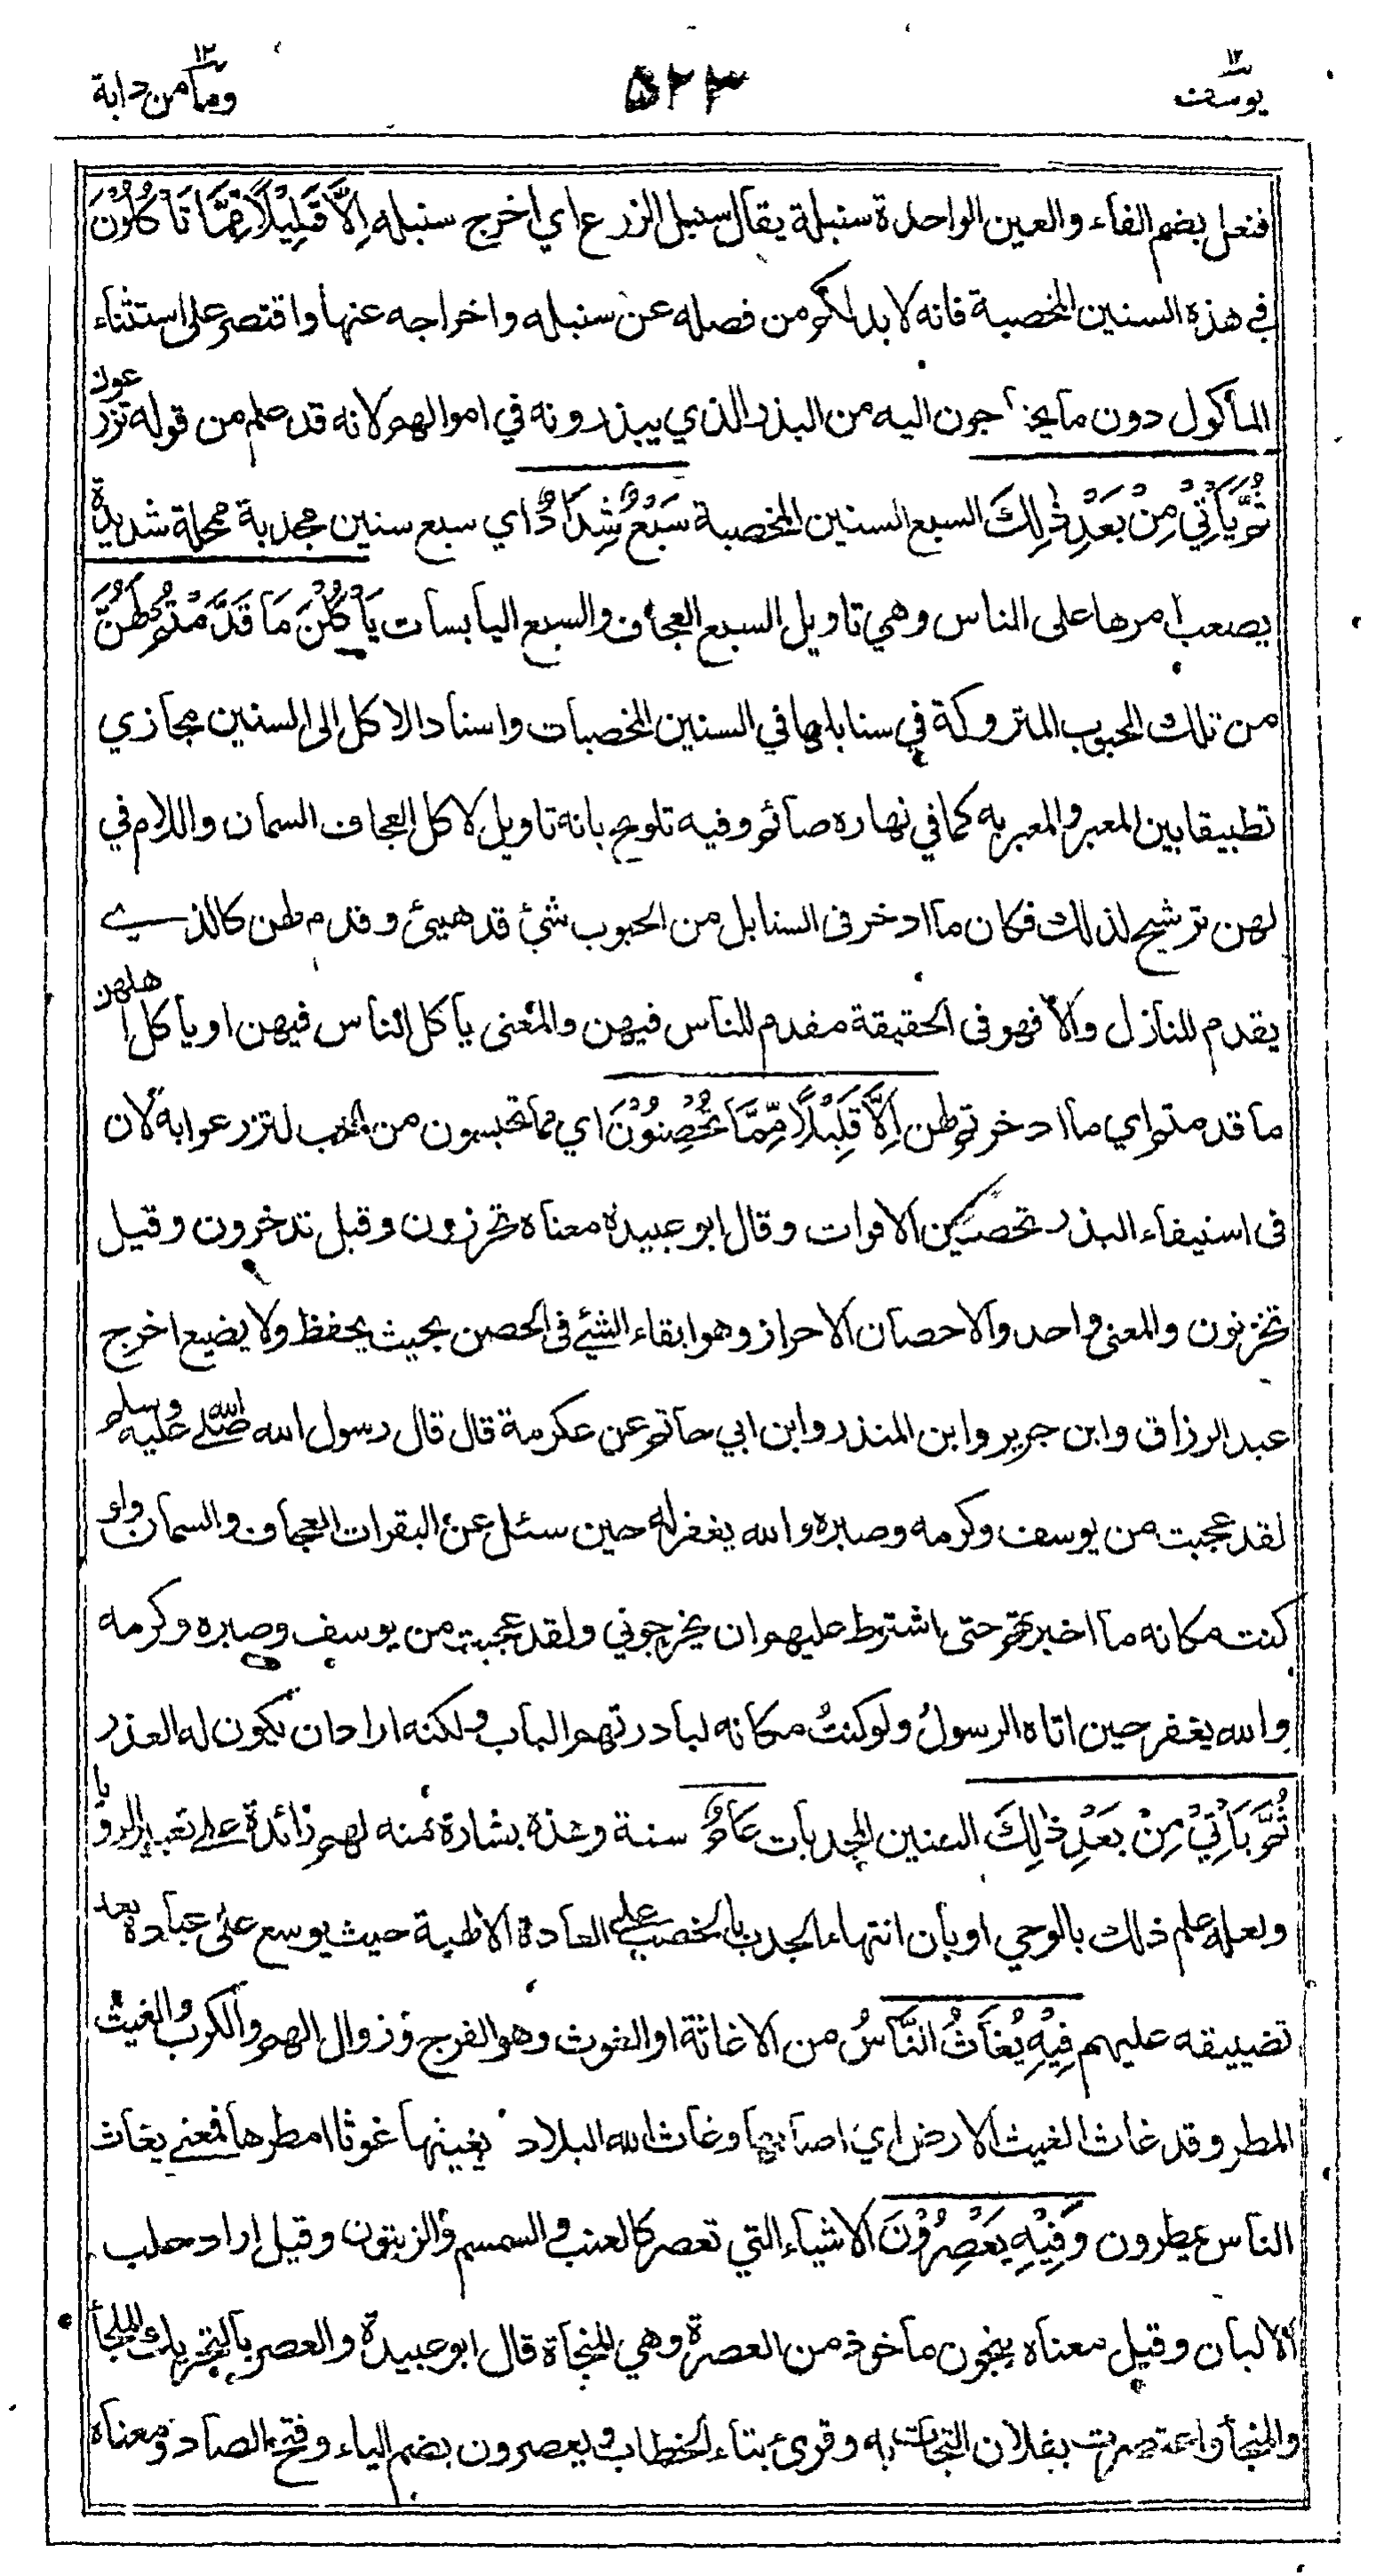 يوسف ١٢
٥٢٣
وما من دابة ١٢
فنعل بضم الفاء والعين الواحدة سنبلة يقال سنبل الزرع اي اخرج سنبله اِلَّا قَلِيْلًا مِّمَّا تَأْكُلُوْنَ
في هذه السنين المخصبة فانه لا بد لكم من فصله عن سنبله واخراجه عنها واقتصر على استثناء
المأكول دون ما يحتاجون اليه من البذر الذي يبذرونه في اموالهم لانه قد علم من قوله تزرعون
ثُمَّ يَأْتِيْ مِنْ بَعْدِ ذٰلِكَ السبع السنين المخصبة سَبْعٌ شِدَادٌ اي سبع سنين مجدبة ممحلة شديدة
يصعب امرها على الناس وهي تاويل السبع العجاف والسبع اليابسات يَأْكُلْنَ مَا قَدَّمْتُمْ لَهُنَّ
من تلك الحبوب المتروكة في سنابلها في السنين المخصبات واسناد الاكل الى السنين مجازي
تطبيقا بين المعبر والمعبر به كما في نهاره صائم وفيه تلويح بانه تاويل لاكل العجاف السمان واللام في
لهن ترشيح لذلك فكان ما ادخر في السنابل من الحبوب شئ قد هيئ وقدم لهن كالذي
يقدم للنازل والا فهو في الحقيقة مقدم للناس فيهن والمعنى يأكل الناس فيهن او يأكل اهلهن
ما قدمتم اي ما ادخرتم لهن اِلَّا قَلِيْلًا مِّمَّا تُحْصِنُوْنَ اي مما تحبسون من الحب لتزرعوا به لان
في استبقاء البذر تحصين الاقوات وقال ابو عبيدة معناه تحرزون وقيل تدخرون وقيل
تخزنون والمعنى واحد والاحصان الاحراز وهو ابقاء الشئ في الحصن بحيث يحفظ ولا يضيع اخرج
عبد الرزاق وابن جرير وابن المنذر وابن ابي حاتم عن عكرمة قال قال رسول الله صلى الله عليه وسلم
لقد عجبت من يوسف وكرمه وصبره والله يغفر له حين سئل عن البقرات العجاف والسمان ولو
كنت مكانه ما اخبرتهم حتى اشترط عليهم ان يخرجوني ولقد عجبت من يوسف وصبره وكرمه
والله يغفر حين اتاه الرسول ولو كنتُ مكانه لبادرتهم الباب ولكنه اراد ان يكون له العذر
ثُمَّ يَأْتِيْ مِنْ بَعْدِ ذٰلِكَ السنين المجدبات عَامٌ سنة وهذه بشارة منه لهم زائدة على تعبير الرؤيا
ولعله علم ذلك بالوحي او بان انتهاء الجدب بالخصب على العادة الالهية حيث يوسع على عباده بعد
تضييقه عليهم فِيْهِ يُغَاثُ النَّاسُ من الاغاثة او الغوث وهو الفرج وزوال الهم والكرب والغيث
المطر وقد غاث الغيث الارض اي اصابها وغاث الله البلاد يغيثها غوثا امطرها فمعنى يغاث
الناس يمطرون وَفِيْهِ يَعْصِرُوْنَ الاشياء التي تعصر كالعنب والسمسم والزيتون وقيل اراد حلب
الالبان وقيل معناه ينجون ماخوذ من العصرة وهي المنجاة قال ابو عبيدة والعصر بالتحريك الملجأ
والمنجأ واعتصرت بفلان التجأت به وقرئ بتاء الخطاب ويعصرون بضم الياء وفتح الصاد ومعناه